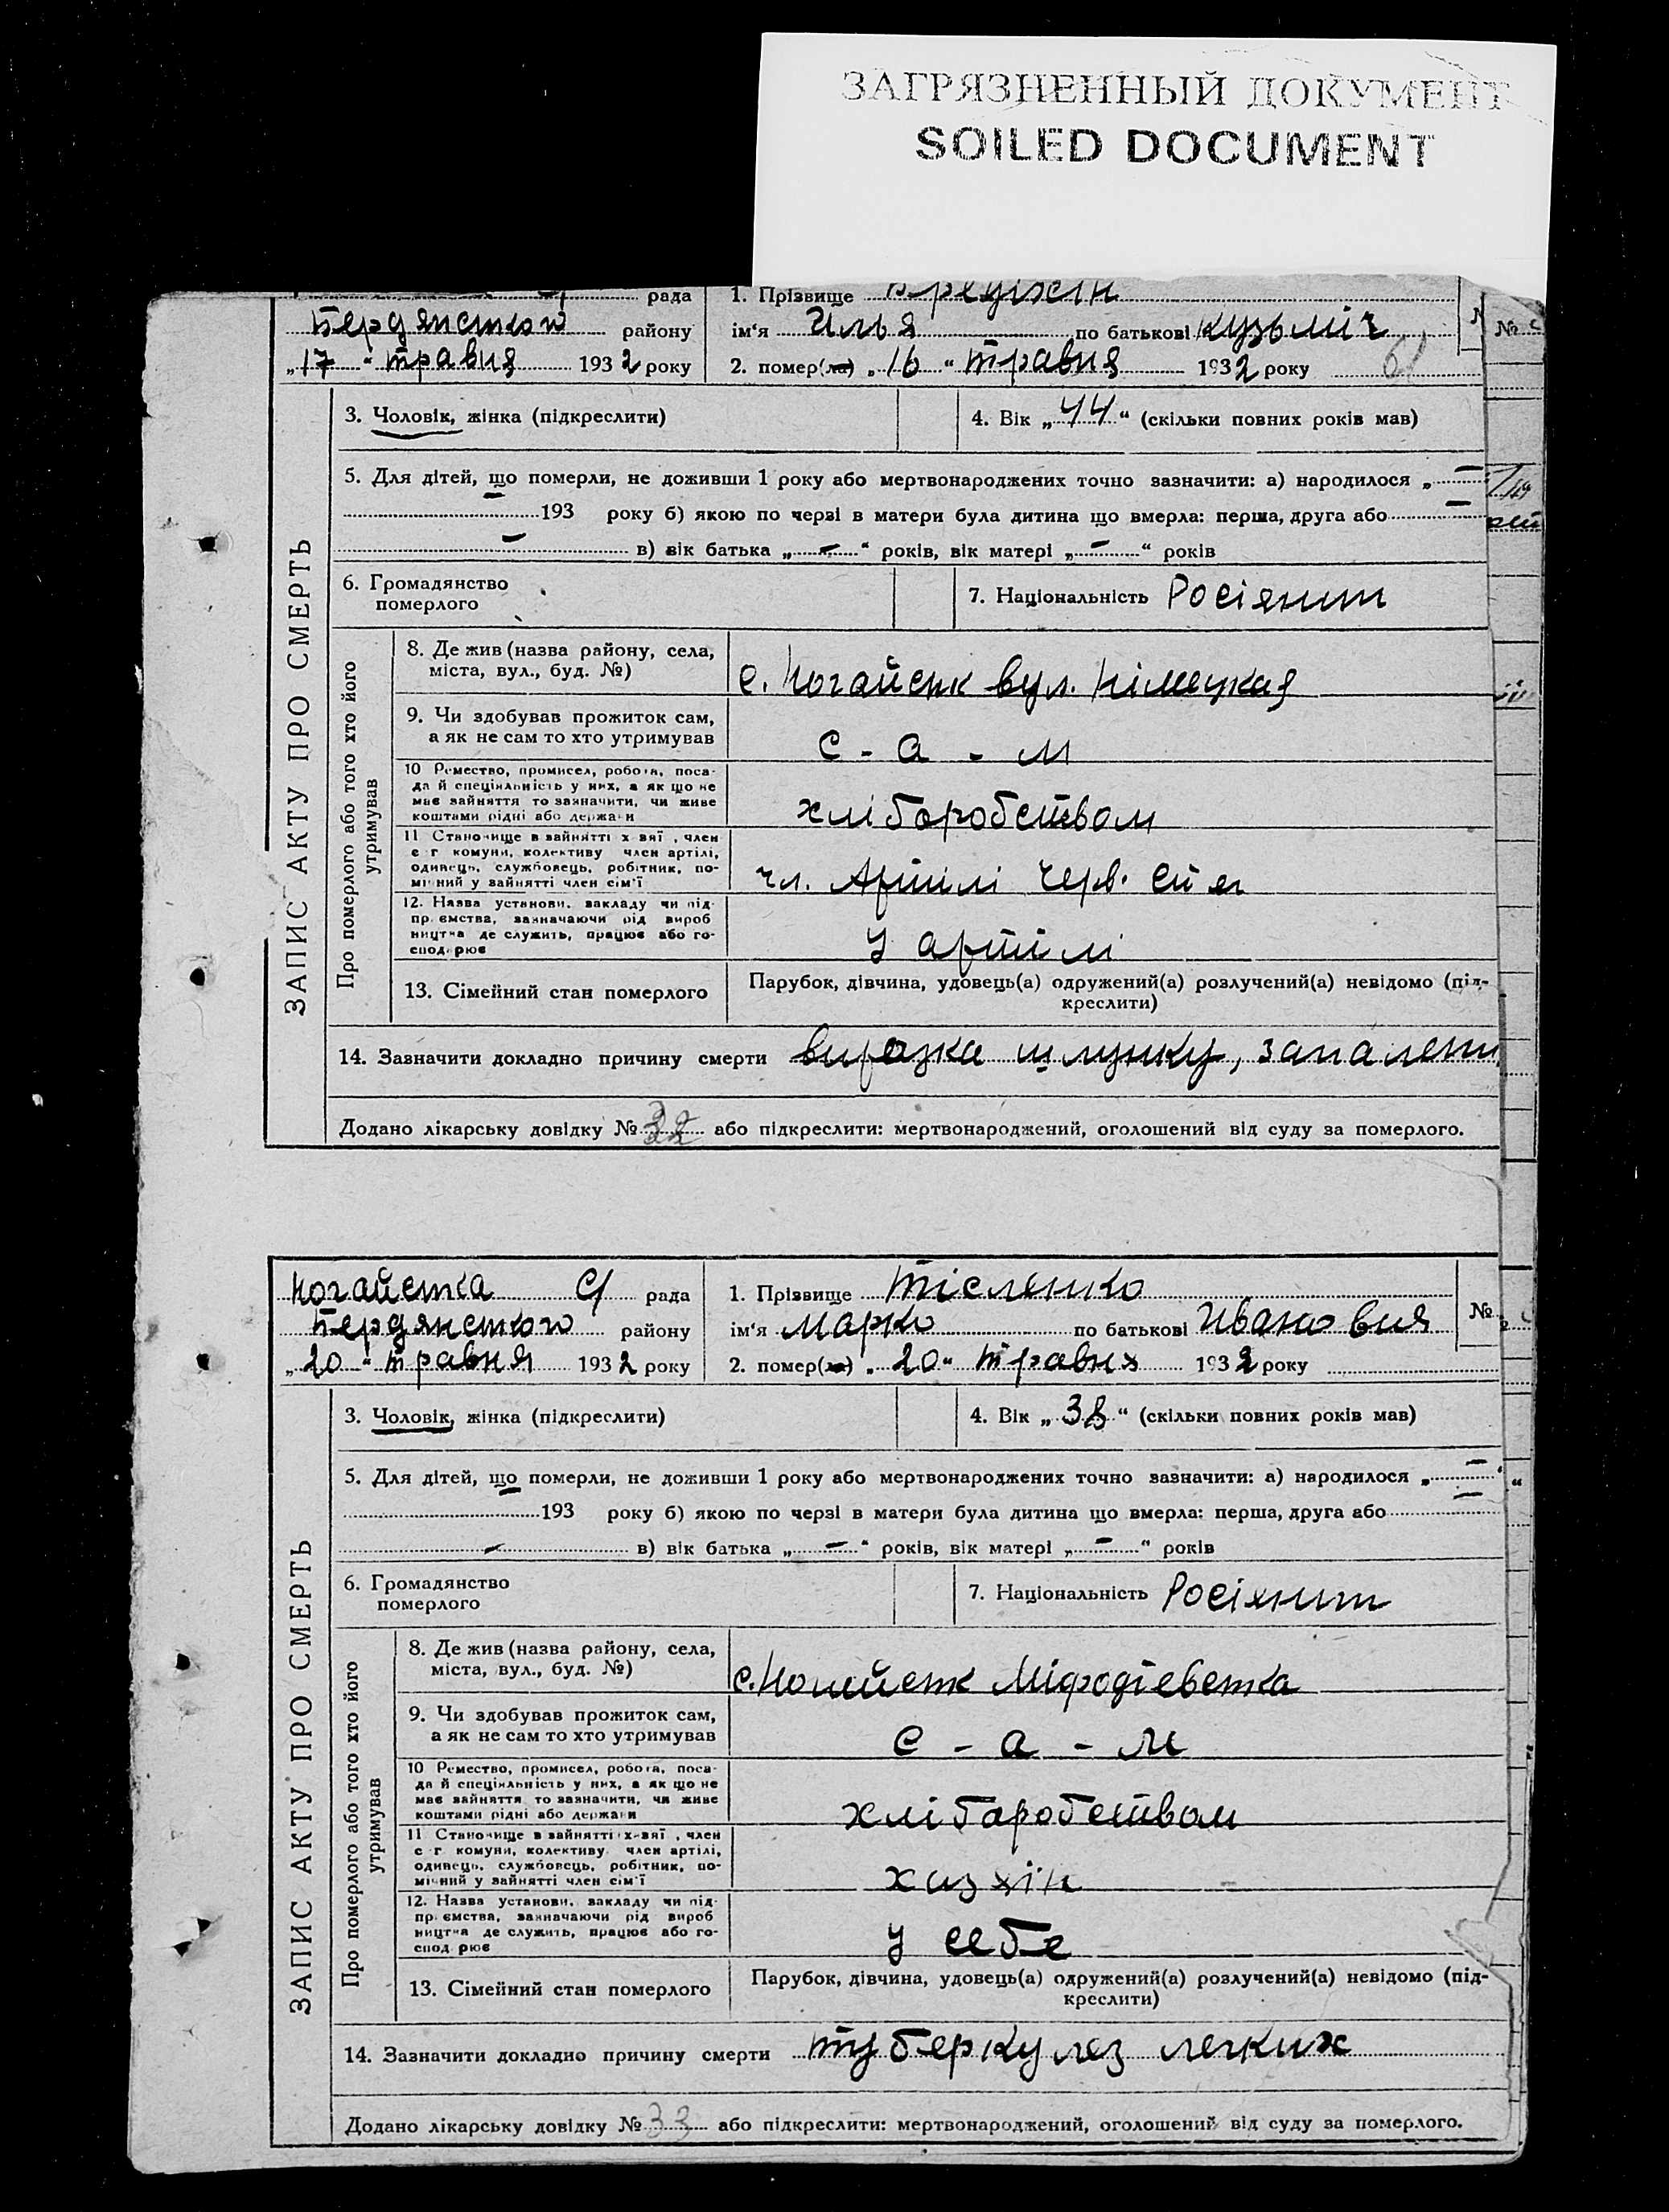 ЗАГРЯЗНЕННЫЙ ДОКУМЕНТ
SOILED DOCUMENT
рада
1. Прізвище
Бердянского району
ім'я Илья по батькові Кузьміч
„17" травня 1932 року
2. помер(ла) „16" травня 1932 року 61
ЗАПИС АКТУ ПРО СМЕРТЬ
3. Чоловік, жінка (підкреслити)
4. Вік „44" (скільки повних років мав)
5. Для дітей, що померли, не доживши 1 року або мертвонароджених точно зазначити: а) народилося „
193 року б) якою по черзі в матери була дитина що вмерла: перша, друга або
в) вік батька „ – " років, вік матері „ – " років
6. Громадянство померлого
7. Національність Росіянин
Про померлого або того хто його утримував
8. Де жив (назва району, села, міста, вул., буд. №)
с. Ногайськ вул. Німецкая
9. Чи здобував прожиток сам, а як не сам то хто утримував
с - а - м
10 Ремество, промисел, робота, поса-
да й спеціяльність у них, а як що не
має зайняття то зазначити, чи живе
коштами рідні або держави
хліборобством
11 Становище в зайнятті х-вяї, член
с г комуни, колективу член артілі,
одинець, службовець, робітник, по-
мічний у зайнятті член сім'ї
чл. Артілі Черв.
12. Назва установи, закладу чи під-
пр ємства, зазначаючи рід вироб
ництва де служить, працює або го-
сподарює
у артілі
13. Сімейний стан померлого
Парубок, дівчина, удовець(а) одружений(а) розлучений(а) невідомо (під-
креслити)
14. Зазначити докладно причину смерти виразка шлунку, запалени
Додано лікарську довідку № 32 або підкреслити: мертвонароджений, оголошений від суду за померлого.
Ногайська С/ рада
1. Прізвище Тісленко
№
Бердянского району
ім'я Марко по батькові Ивановия
„20" травня 1932 року
2. помер(ла) „20" травня 1932 року
ЗАПИС АКТУ ПРО СМЕРТЬ
3. Чоловік, жінка (підкреслити)
4. Вік „38" (скільки повних років мав)
5. Для дітей, що померли, не доживши 1 року або мертвонароджених точно зазначити: а) народилося „
193 року б) якою по черзі в матери була дитина що вмерла: перша, друга або
в) вік батька „ – " років, вік матері „ – " років
6. Громадянство померлого
7. Національність Росіянин
Про померлого або того хто його утримував
8. Де жив (назва району, села, міста, вул., буд. №)
с. Мфодіевська
9. Чи здобував прожиток сам, а як не сам то хто утримував
с - а - м
10 Ремество, промисел, робота, поса-
да й спеціяльність у них, а як що не
має зайняття то зазначити, чи живе
коштами рідні або держави
хліборобством
11 Становище в зайнятті х-вяї, член
с г комуни, колективу член артілі,
одинець, службовець, робітник, по-
мічний у зайнятті член сім'ї
хазяїн
12. Назва установи, закладу чи під-
пр ємства, зазначаючи рід вироб
ництва де служить, працює або го-
спод рює
у себе
13. Сімейний стан померлого
Парубок, дівчина, удовець(а) одружений(а) розлучений(а) невідомо (під-
креслити)
14. Зазначити докладно причину смерти туберкулез легких
Додано лікарську довідку № 33 або підкреслити: мертвонароджений, оголошений від суду за померлого.